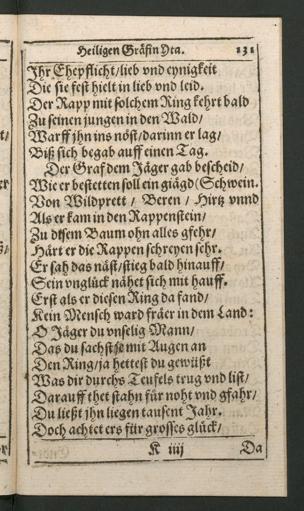 Heiligen Gräfin Yta. 131
Ihr Ehepflicht/lieb vnd eynigkeit
Die sie fest hielt in lieb vnd leid.
Der Rapp mit solchem Ring kehrt bald
Zu seinen jungen in den Wald/
Warff jhn ins näst/darinn er lag/
Biß sich begab auff einen Tag.
Der Graf dem Jäger gab bescheid/
Wie er bestetten soll ein giägd (Schwein.
Von Wildprett / Beren / Hirtz vnnd
Als er kam in den Rappenstein/
Zu disem Baum ohn alles gfehr/
Härt er die Rappen schreyen sehr.
Er sah das näst/stieg bald hinauff/
Sein vnglück nähet sich mit hauff.
Erst als er diesen Ring da fand/
Kein Mensch ward fräer in dem Land:
O Jäger du vnselig Mann/
Das du sachst se mit Augen an
Den Ring/ja hettest du gewüßt
Was dir durchs Teufels trug vnd list/
Darauff thet stahn für noht vnd gfahr/
Du ließt jhn liegen tausent Jahr.
Doch achtet ers für grosses glück/
K iiij Da